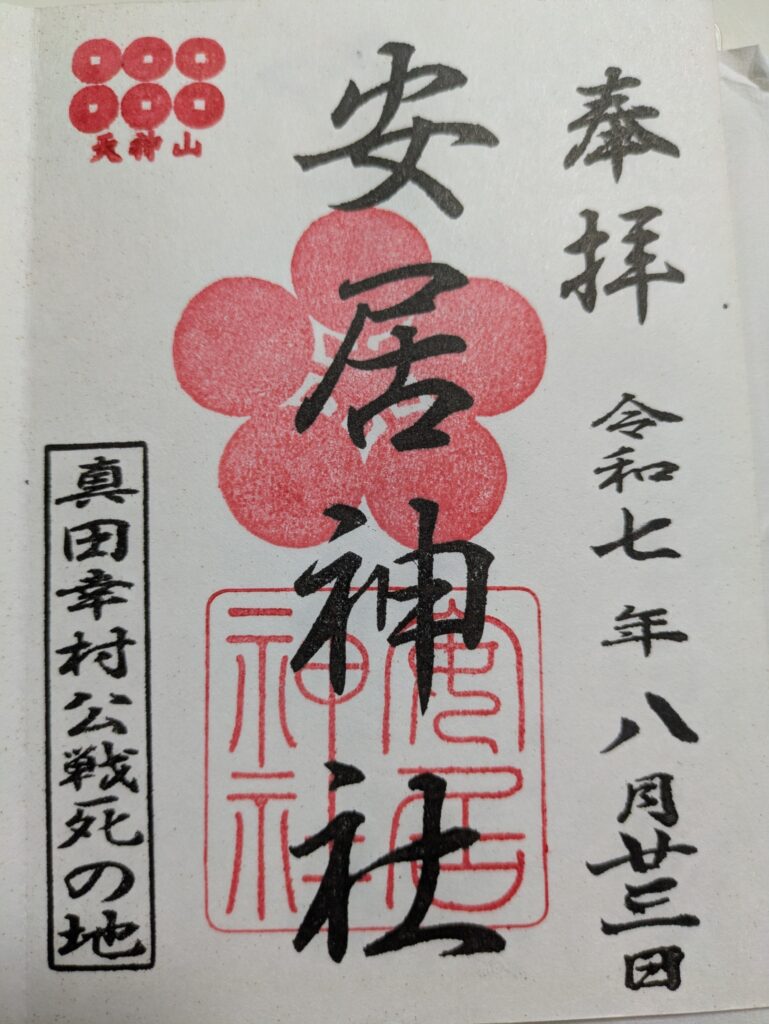 奉拝
令和七年八月廿三日
安居神社
安居神社
天神山
真田幸村公戦死の地